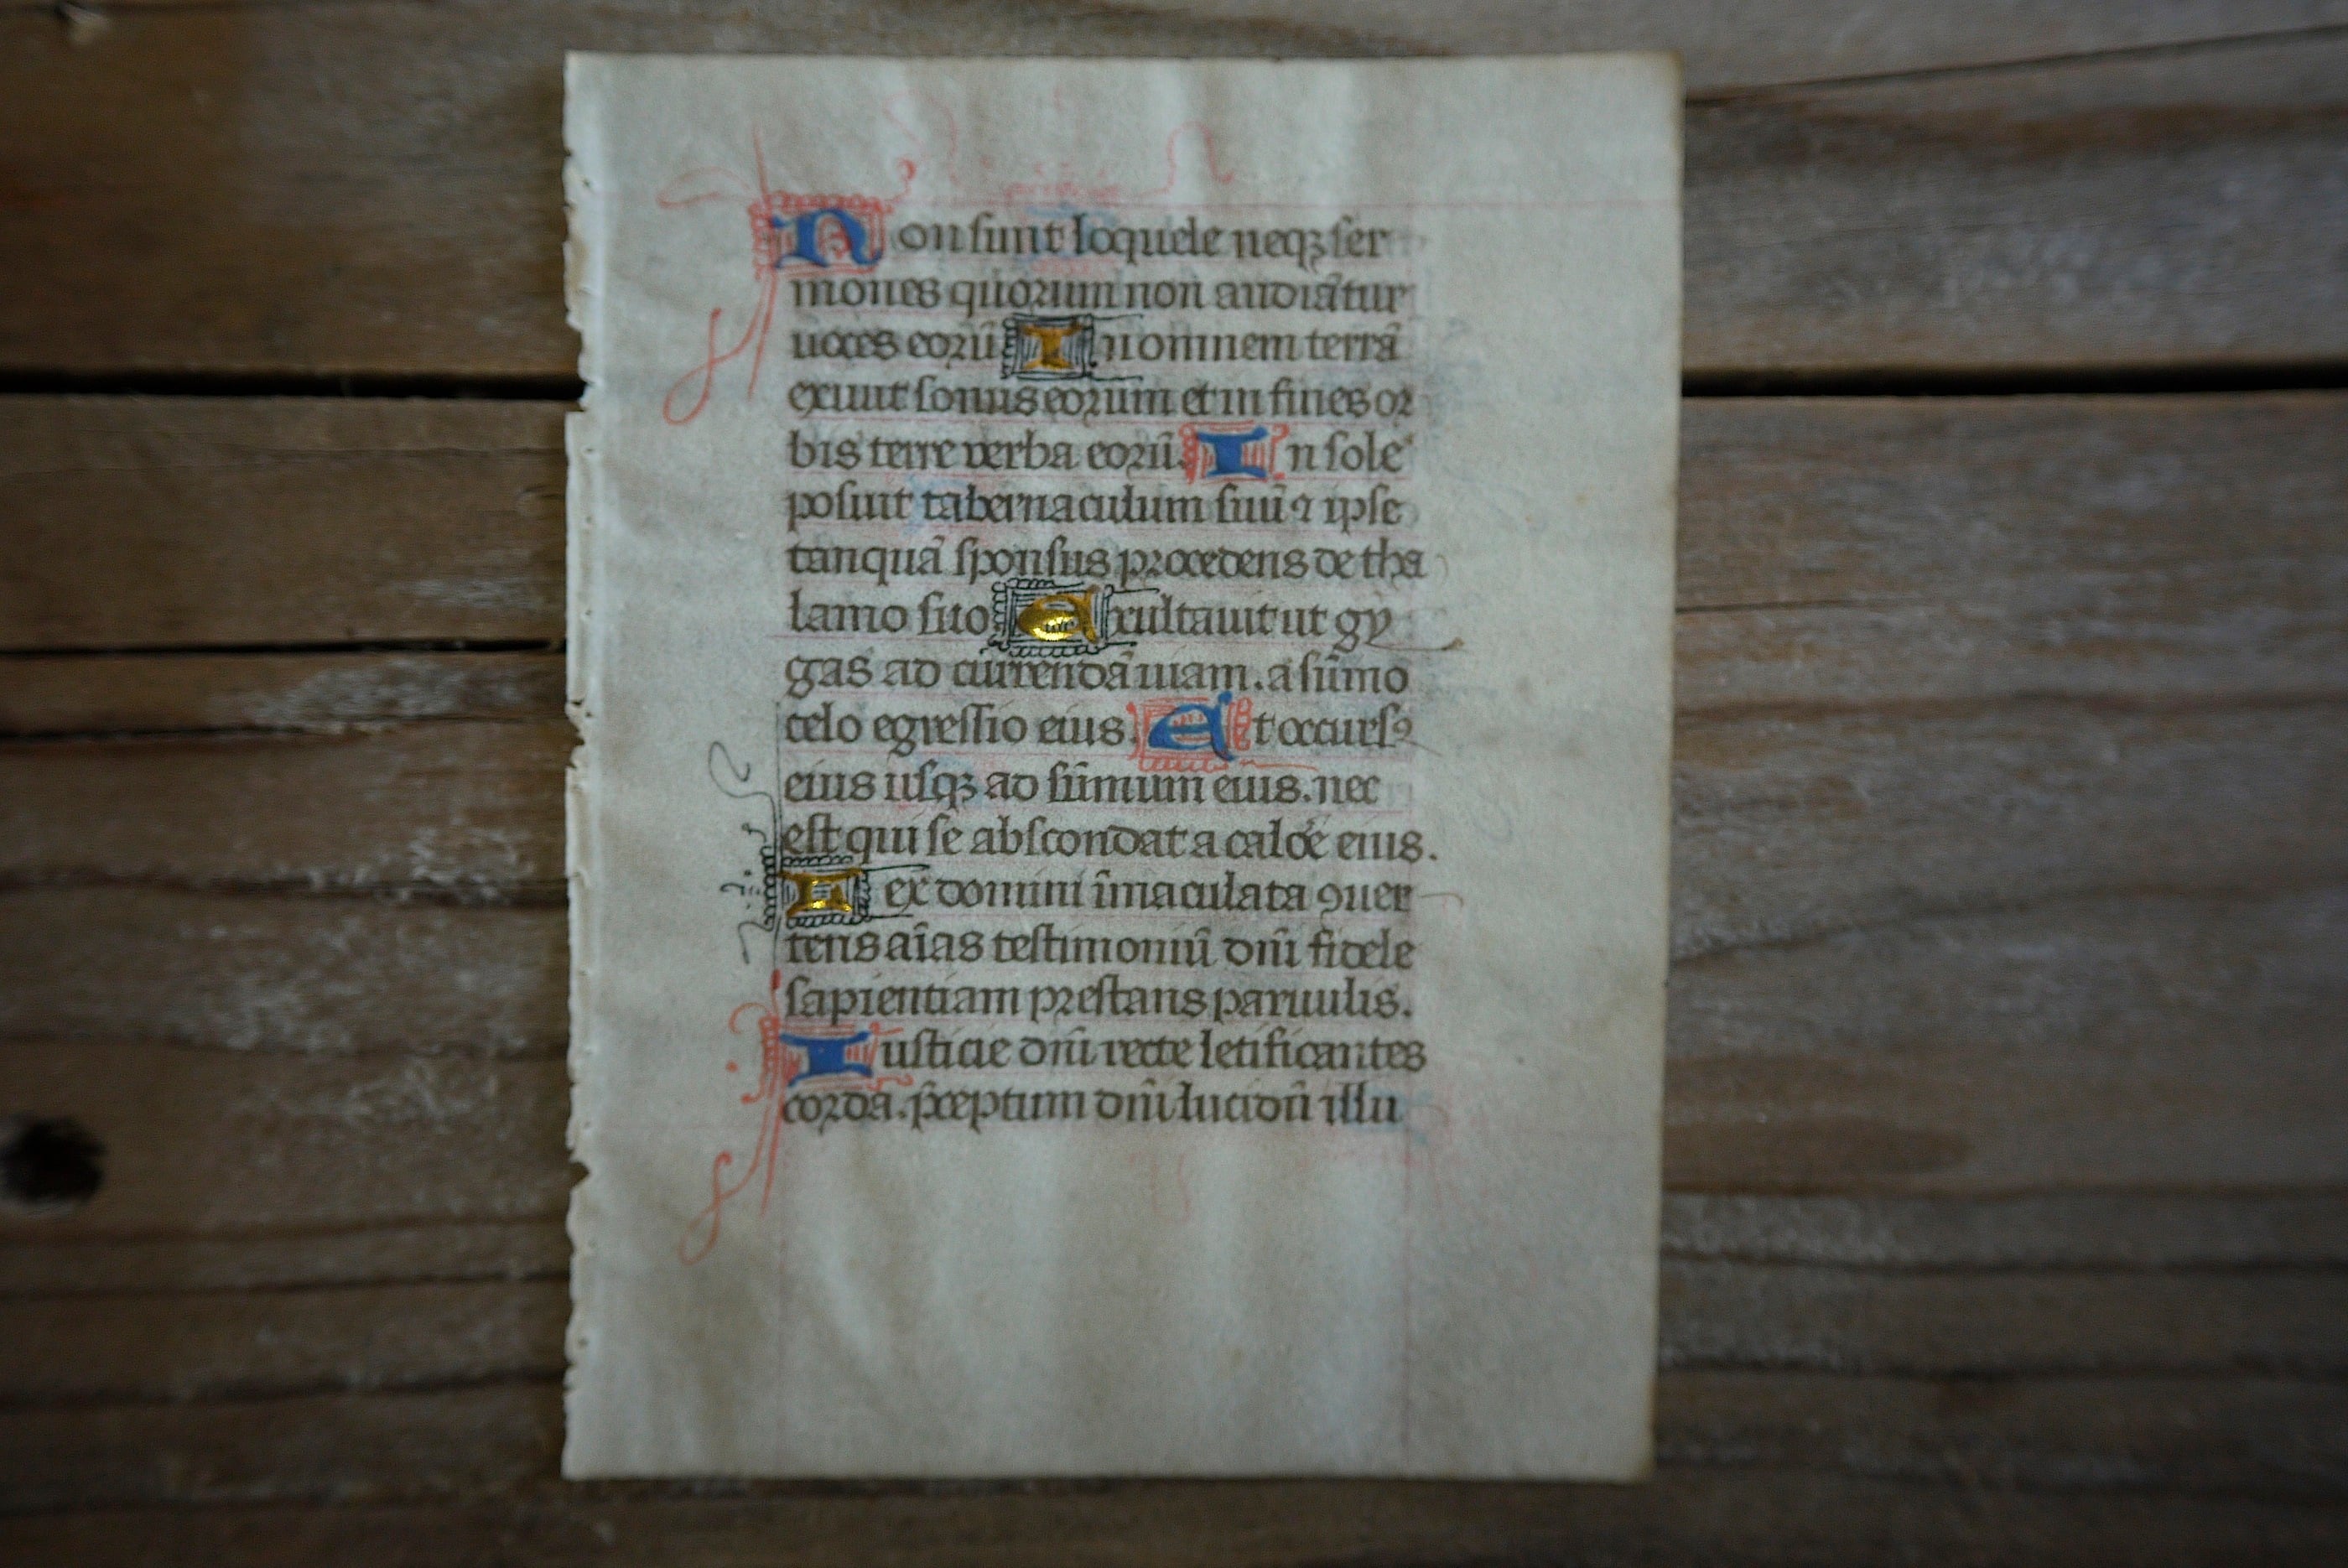 Non sunt loquele neqꝫ ser
mones quorum non audiãtur
uoces eorũ In omnem terrã
exiuit sonus eorum et in fines or
bis terre verba eorũ. In sole
posuit tabernaculum suũ ⁊ ipse
tanquã sponsus procedens de tha
lamo suo Exultauit ut gy
gas ad currendã uiam. a sũmo
celo egressio eius. Et occursꝰ
eius usqꝫ ad sũmum eius. nec
est qui se abscondat a caloꝛe eius.
Lex domini ĩmaculata ꝯuer
tens aĩas testimoniũ dñi fidele
sapientiam prestans paruulis.
Iusticie dñi recte letificantes
corda. p̃ceptum dñi lucidũ illu